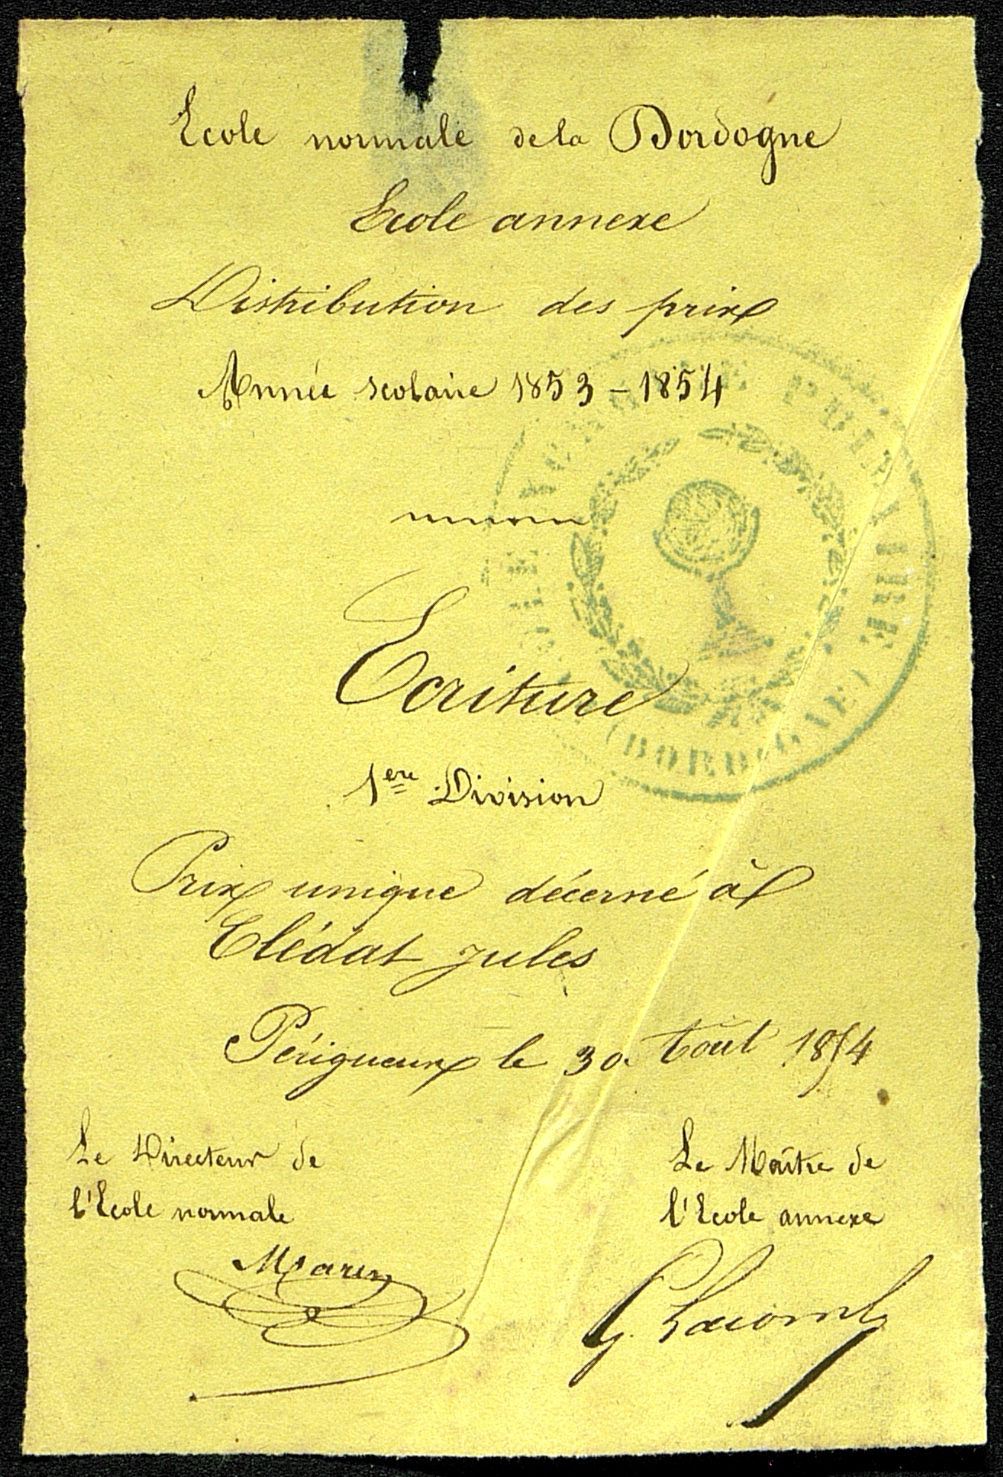 Ecole normale de la Dordogne
Ecole annexe
Distribution des prix
Année scolaire 1853 - 1854
ECOLE NORMALE PRIMAIRE
(DORDOGNE)
Ecriture
1ère Division
Prix unique décerné à
Clédat Jules
Périgueux le 30 Août 1854
Le Directeur de
l'Ecole normale
Le Maître de
l'Ecole annexe
G. Lacombe